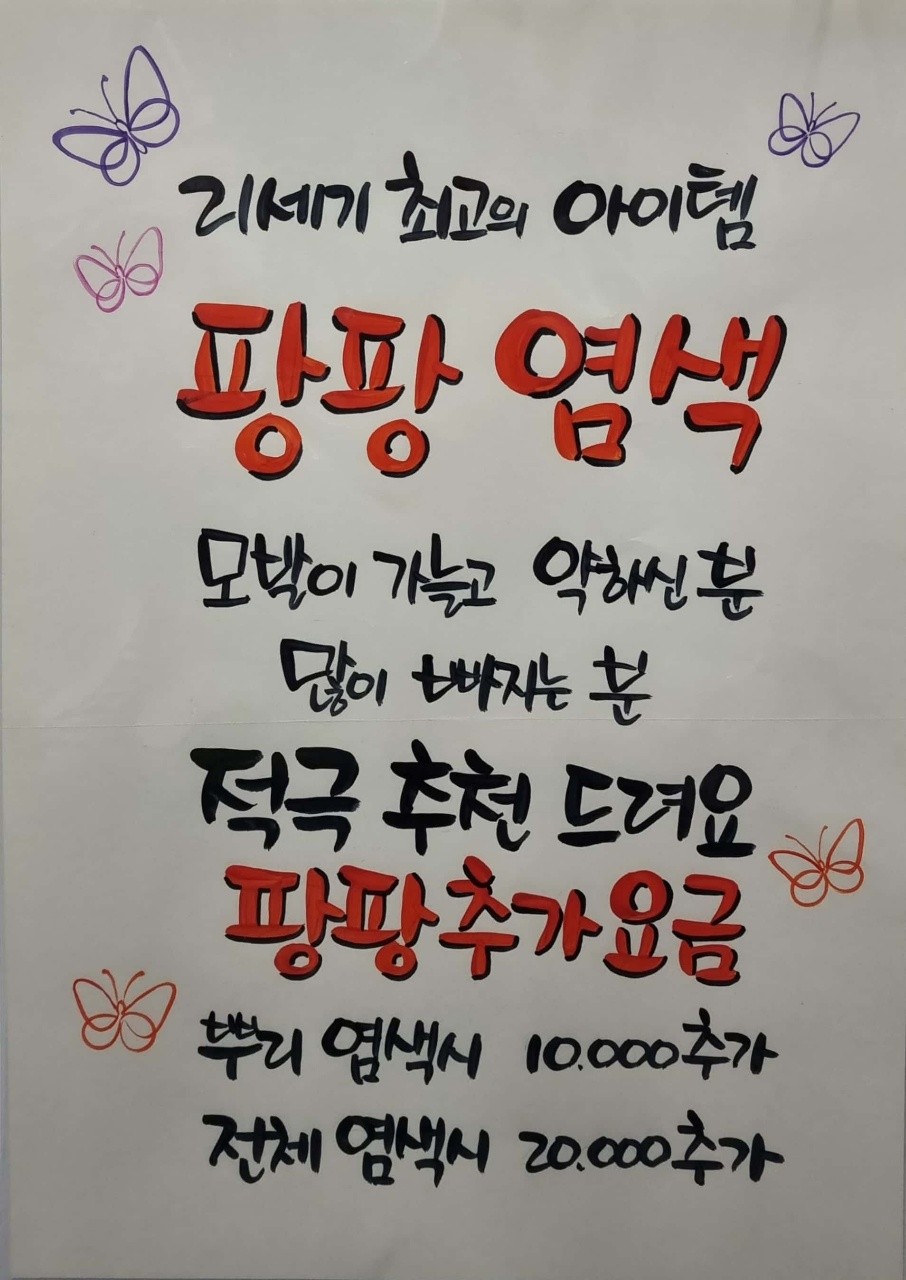 리세기 최고의 아이템
팡팡 염색
모발이 가늘고 약하신 분
많이 빠지는 분
적극 추천 드려요
팡팡 추가요금
뿌리 염색시 10.000추가
전체 염색시 20.000추가